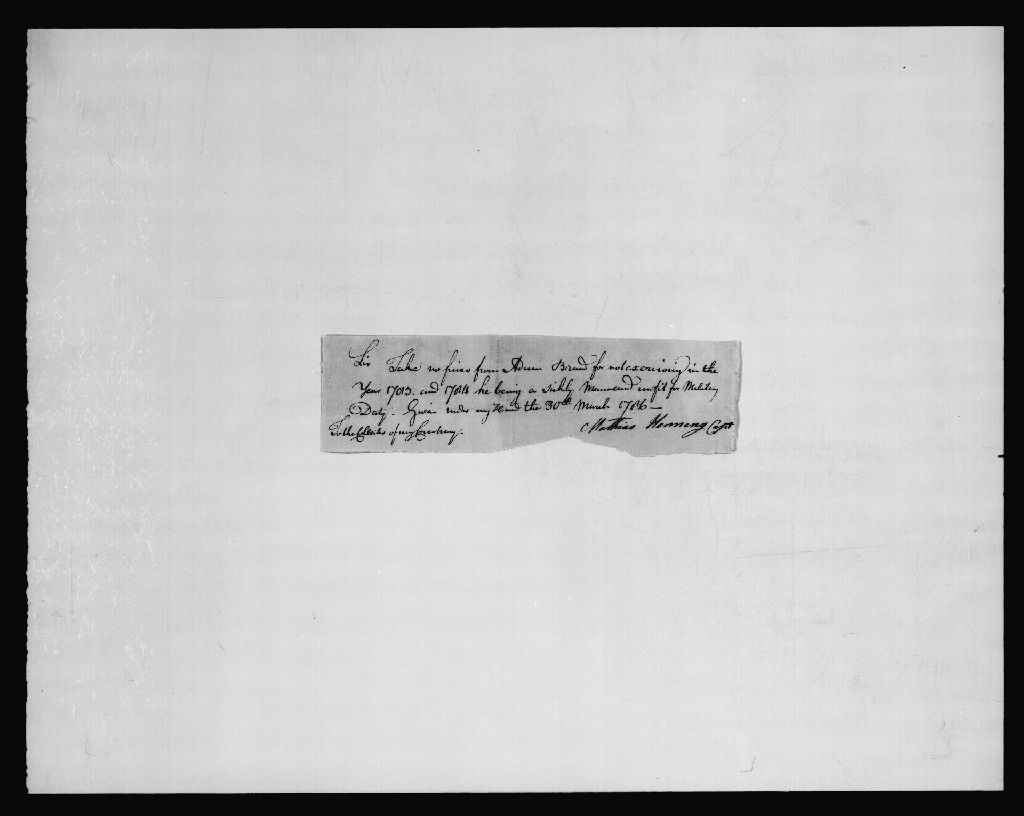 Sir Take no fines from Adam Brand for not exercising in the
Year 1783. and 1784 he being a sickly Man and unfit for Military
Duty. Given under my Hand the 30th March 1786 —
To the Collector of my Company. Mathias Henneng Capt